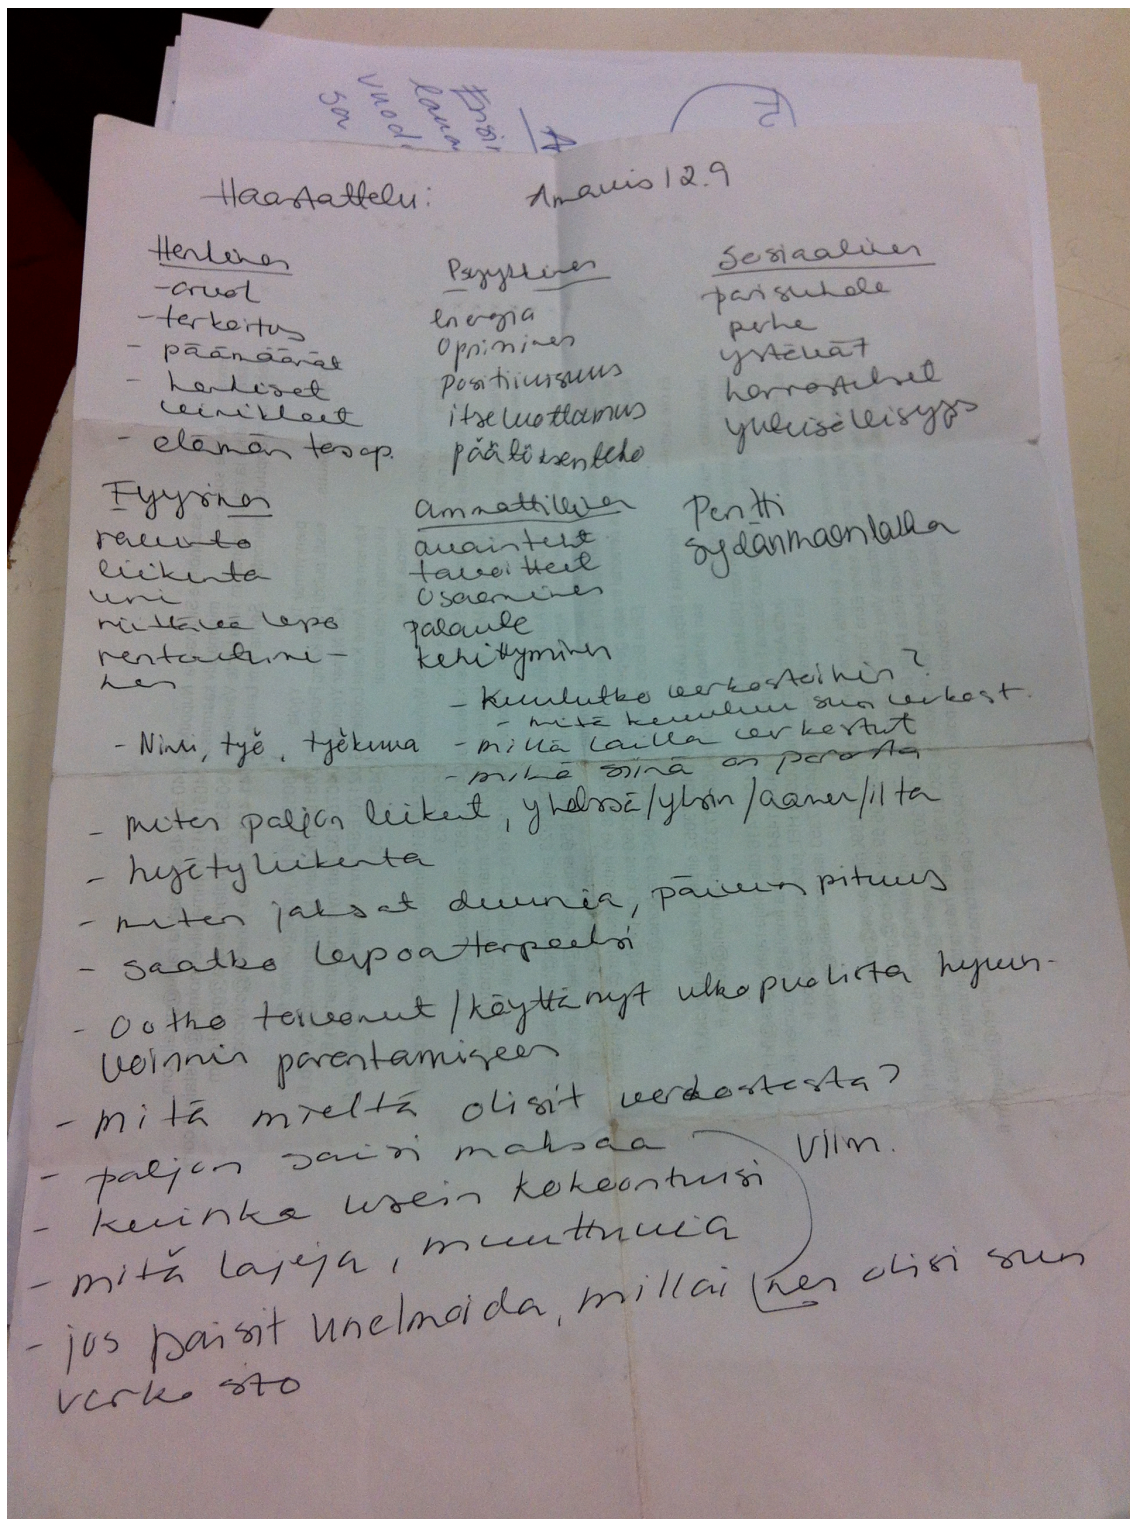 Haastattelu: 12.9
Henkinen
- arvot
- tarkoitus
- päämäärät
- henkiset
virikkeet
- elämän tasap.
Psyykkinen
energia
Oppiminen
positiivisuus
itseluottamus
päätöksenteko
Sosiaalinen
parisuhde
perhe
ystävät
harrastukset
yhteisöllisyys
Fyysinen
ravinto
liikunta
uni
riittävä lepo
rentoutumi-
nen
ammatillinen
avainteht
tavoitteet
Osaaminen
palaute
kehittyminen
Pentti
Sydänmaanlakka
- Kuulutko verkostoihin?
- mitä kuuluu sun verkost.
- Nimi, työ, työkuva
- millä lailla verkostut
- mikä siinä on parasta
- miten paljon liikut, yhdessä/yksin/aamu/ilta
- hyötyliikunta
- miten jaksat duunia, päivän pituus
- saatko lepoa tarpeeksi
- Ootko toivonut/käyttänyt ulkopuolista hyvin-
voinnin parantamiseen
- mitä mieltä olisit verkostosta?
- paljon saisi maksaa
Viim.
- kuinka usein kokoontuisi
- mitä lajeja, muuttuvia
- jos saisit unelmoida, millainen olisi sun
verkosto